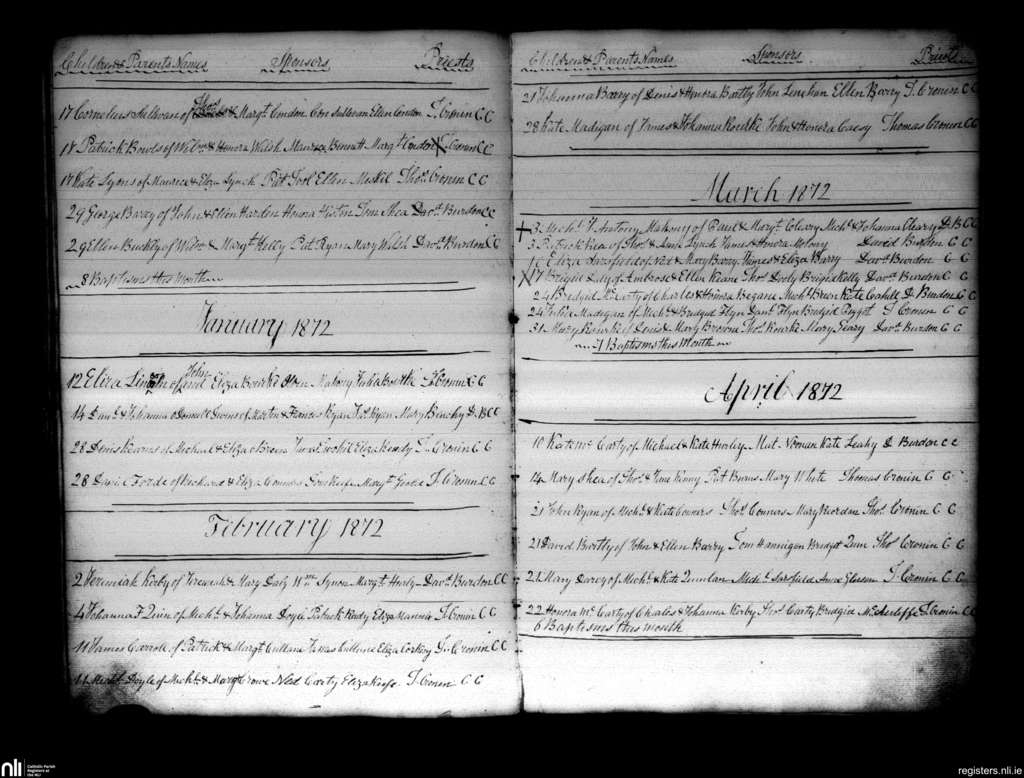 Children & Parents Names Sponsors Priests
17 Cornelius Sullivan of Thos & Margt Condon Con Sullivan Ellen Condon T. Cronin CC
18 Patrick Bowls of Wm & Honora Walsh Maurice Bennett Margt Condon T. Cronin CC
18 Kate Lyons of Maurice & Eliza Lynch Pat Ellen Meskil Thos. Cronin CC
29 George Barry of John & Ellen Honora Tom Shea Davd. Burdon CC
29 Ellen Buckley of Wm & Margt Pat Ryan Mary Walsh Davd. Burdon CC
8 Baptisms this Month
January 1872
12 Eliza of John and Eliza Bourke Mahony Julia T. Cronin CC
14 Johanna of Martin & Frances Ryan Ryan Mary D. B CC
28 Denis of Michael & Eliza Eliza T. Cronin CC
28 David Forde of Richard & Eliza Connors Margt T. Cronin CC
February 1872
2 Jeremiah Kirby of Jeremiah & Mary Daly Wm Margt Davd. Burdon CC
4 Johanna Quin of Michl. & Johanna Doyle Patrick Eliza T. Cronin CC
11 James Carroll of Patrick & Margt Cullane James Cullane Eliza Corkery T. Cronin CC
11 Doyle of Michl. & Margt Crowe Ned Carty Eliza T. Cronin CC
Children & Parents Names Sponsors Priests
21 Johanna Barry of Denis & Honora Bartly John Linehan Ellen Barry T. Cronin CC
28 Kate Madigan of James & Johanna Rourke John & Honora Casey Thomas Cronin CC
March 1872
3 Michl. Antony Mahony of Paul & Margt. Cleary Michl. & Johanna Cleary D. B CC
3 Patrick Rea of Thos. & Lynch James & Honora Molony David Burdon CC
10 Eliza Sarsfield of & Mary Barry James & Eliza Barry Davd. Burdon CC
17 Brigid Daly of Ambrose & Ellen Keane Thos. Brigid Kelly Davd. Burdon CC
24 Bridget McCarty of Charles & Honora Regane Michl. Breen Kate Cahill D. Burdon CC
24 Julia Madigan of Michl. & Bridget Flyn Danl. Flyn Bridget T. Cronin CC
31 Mary Rourke of Denis & Mary Browne Thos. Rourke Mary Geary Davd. Burdon CC
7 Baptisms this Month
April 1872
10 Kate Mc Carty of Michael & Kate Hurley Mat. Noonan Kate Leahy D Burdon CC
14 Mary Shea of Thos. & Jane Pat Burns Mary White Thomas Cronin CC
21 John Ryan of Michl. & Kate Connors Thos. Connors Mary Riordan Thos. Cronin CC
21 David Bartly of John & Ellen Barry Tom Hannigan Bridget Quin Thos Cronin CC
21 Mary Darcy of Michl. & Kate Quinlan Michl. Sarsfield Anne Gleeson T. Cronin CC
22 Honora McCarty of Charles & Johanna Kirby Thos. Carty Bridget McAuliffe T. Cronin CC
6 Baptisms this month
nli
Catholic Parish
Registers at
the NLI
registers.nli.ie